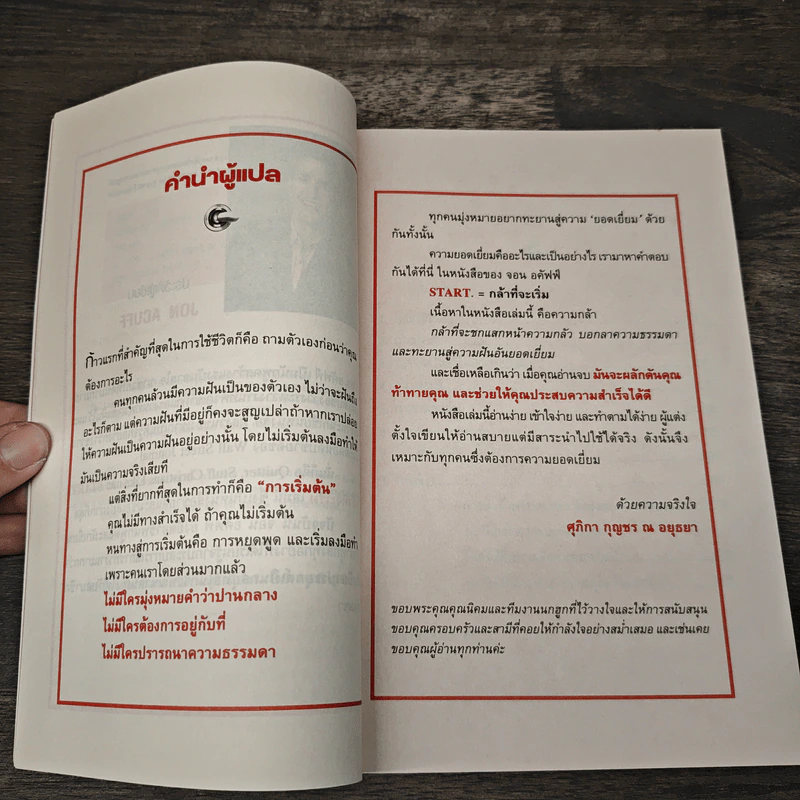 คำนำผู้แปล
ก้าวแรกที่สำคัญที่สุดในการใช้ชีวิตก็คือ ถามตัวเองก่อนว่าคุณ
ต้องการอะไร
คนทุกคนล้วนมีความฝันเป็นของตัวเอง ไม่ว่าจะฝันถึง
อะไรก็ตาม แต่ความฝันที่มีอยู่ก็คงจะสูญเปล่าถ้าหากเราปล่อย
ให้ความฝันเป็นความฝันอยู่อย่างนั้น โดยไม่เริ่มต้นลงมือทำให้
มันเป็นความจริงเสียที
แต่สิ่งที่ยากที่สุดในการทำก็คือ “การเริ่มต้น”
คุณไม่มีทางสำเร็จได้ ถ้าคุณไม่เริ่มต้น
หนทางสู่การเริ่มต้นคือ การหยุดพูด และเริ่มลงมือทำ
เพราะคนเราโดยส่วนมากแล้ว
ไม่มีใครมุ่งหมายคำว่าปานกลาง
ไม่มีใครต้องการอยู่กับที่
ไม่มีใครปรารถนาความธรรมดา
ทุกคนมุ่งหมายอยากทะยานสู่ความ ‘ยอดเยี่ยม’ ด้วย
กันทั้งนั้น
ความยอดเยี่ยมคืออะไรและเป็นอย่างไร เรามาหาคำตอบ
กันได้ที่นี่ ในหนังสือของ จอน อคัฟฟ์
START. = กล้าที่จะเริ่ม
เนื้อหาในหนังสือเล่มนี้ คือความกล้า
กล้าที่จะชกแสกหน้าความกลัว บอกลาความธรรมดา
และทะยานสู่ความฝันอันยอดเยี่ยม
และเชื่อเหลือเกินว่า เมื่อคุณอ่านจบ มันจะผลักดันคุณ
ท้าทายคุณ และช่วยให้คุณประสบความสำเร็จได้ดี
หนังสือเล่มนี้อ่านง่าย เข้าใจง่าย และทำตามได้ง่าย ผู้แต่ง
ตั้งใจเขียนให้อ่านสบายแต่มีสาระนำไปใช้ได้จริง ดังนั้นจึง
เหมาะกับทุกคนซึ่งต้องการความยอดเยี่ยม
ด้วยความจริงใจ
ศุภิกา กุญชร ณ อยุธยา
ขอบพระคุณคุณนิคมและทีมงานนกฮูกที่ไว้วางใจและให้การสนับสนุน
ขอบคุณครอบครัวและสามีที่คอยให้กำลังใจอย่างสม่ำเสมอ และเช่นเคย
ขอบคุณผู้อ่านทุกท่านค่ะ